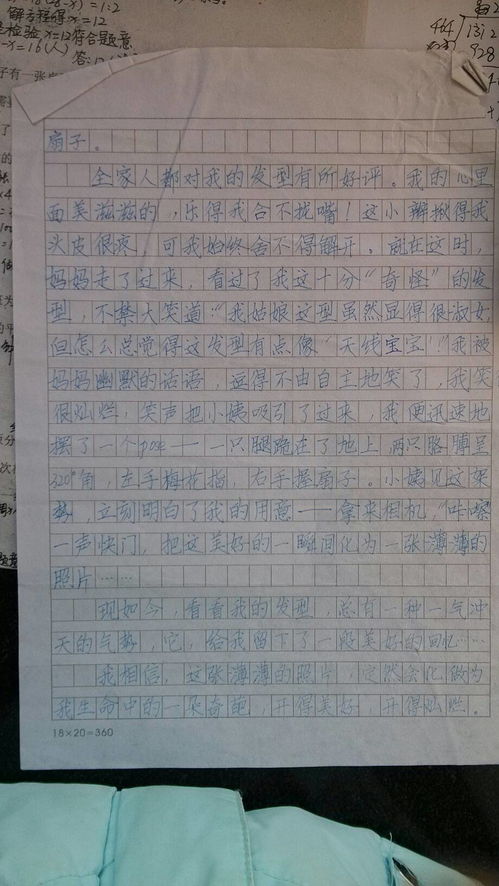 18(28-x)=1:2
解方程得x=12
检验x=12符合题意
-x=16(人)
464
1312
928
子有一张
扇子。
全家人都对我的发型有所好评。我的心里
面美滋滋的,乐得我合不拢嘴!这小辫揪得我
头皮很疼,可我始终舍不得解开。就在这时,
妈妈走了过来,看过了我这十分“奇怪”的发
型,不禁大笑道:“我姑娘这型虽然显得很淑女,
但怎么总觉得这发型有点像“天线宝宝!”我被
妈妈幽默的话语,逗得不由自主地笑了,我笑
很灿烂,笑声把小姨吸引了过来,我便迅速地
摆了一个pose——一只腿跪在了地上,两只胳膊呈
320°角,左手梅花指,右手握扇子。小姨见这架
势,立刻明白了我的用意——拿来相机,“咔嚓”
一声快门,把这美好的一瞬间化为一张薄薄的
照片……
现如今,看看我的发型,总有一种一气冲
天的气势,它,给我留下了一段美好的回忆……
我相信,这张薄薄的照片,定然会化做为
我生命中的一朵奇葩,开得美好,开得灿烂。
18×20=360